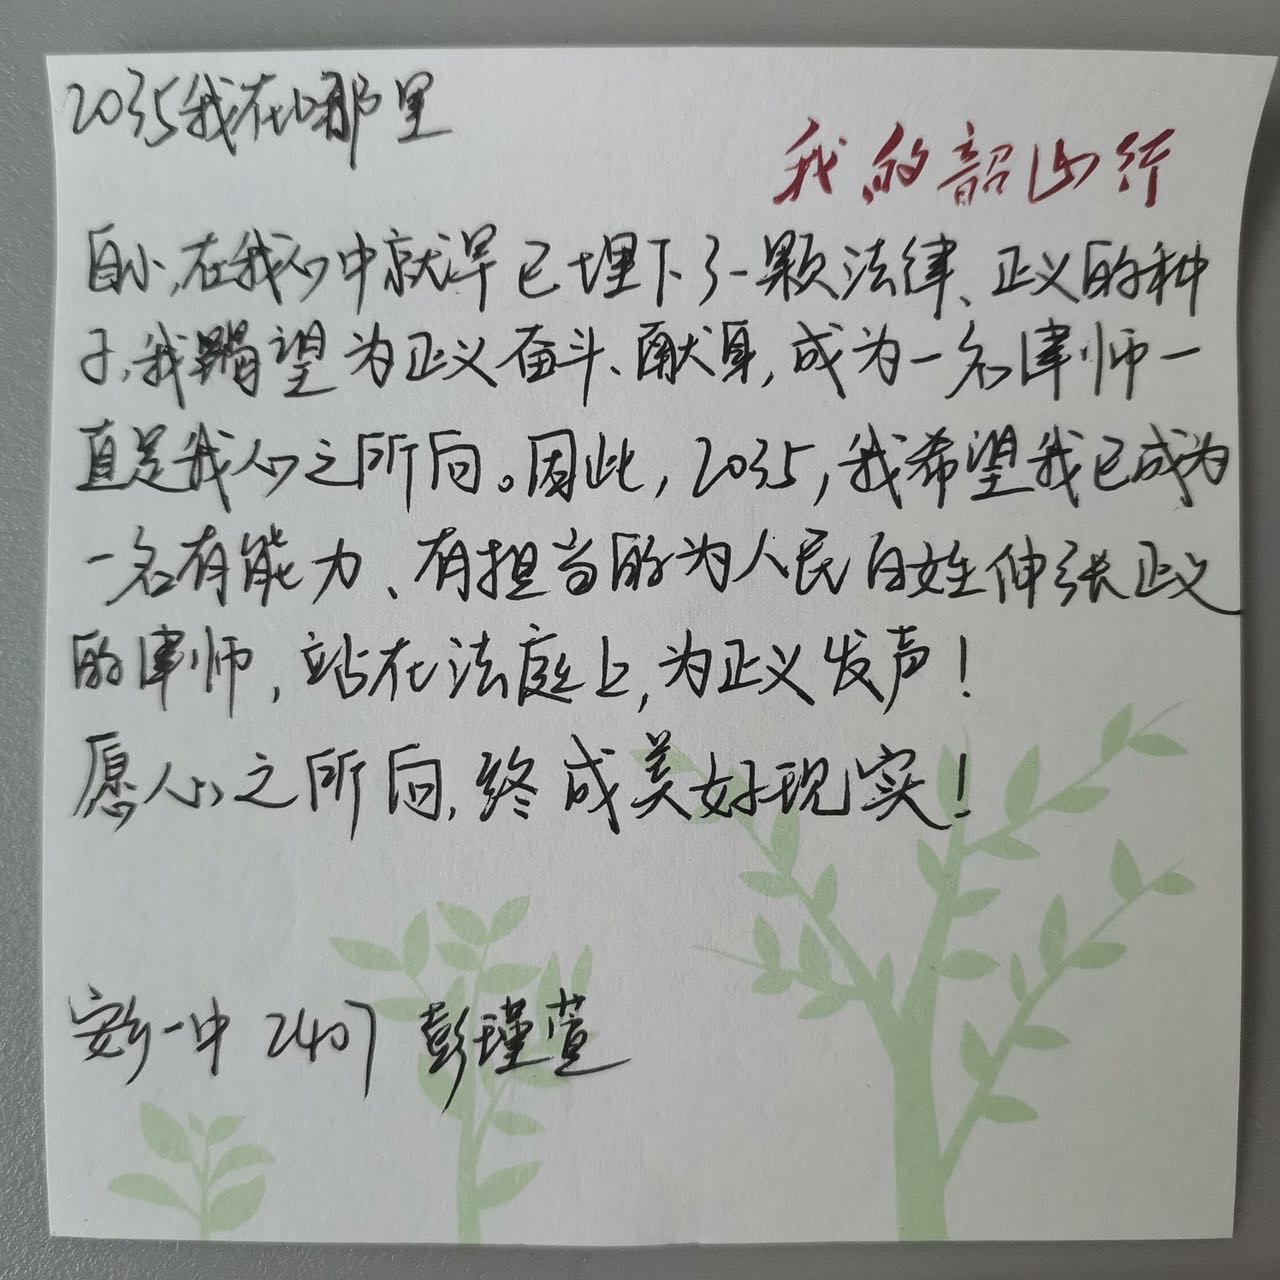 2035我在哪里
我的韶山行
自小,在我心中就早已埋下了一颗法律、正义的种
子,我渴望为正义奋斗、献身,成为一名律师一
直是我心之所向。因此,2035,我希望我已成为
一名有能力、有担当的为人民百姓伸张正义
的律师,站在法庭上,为正义发声!
愿心之所向,终成美好现实!
安乡一中 2407 彭瑾萱